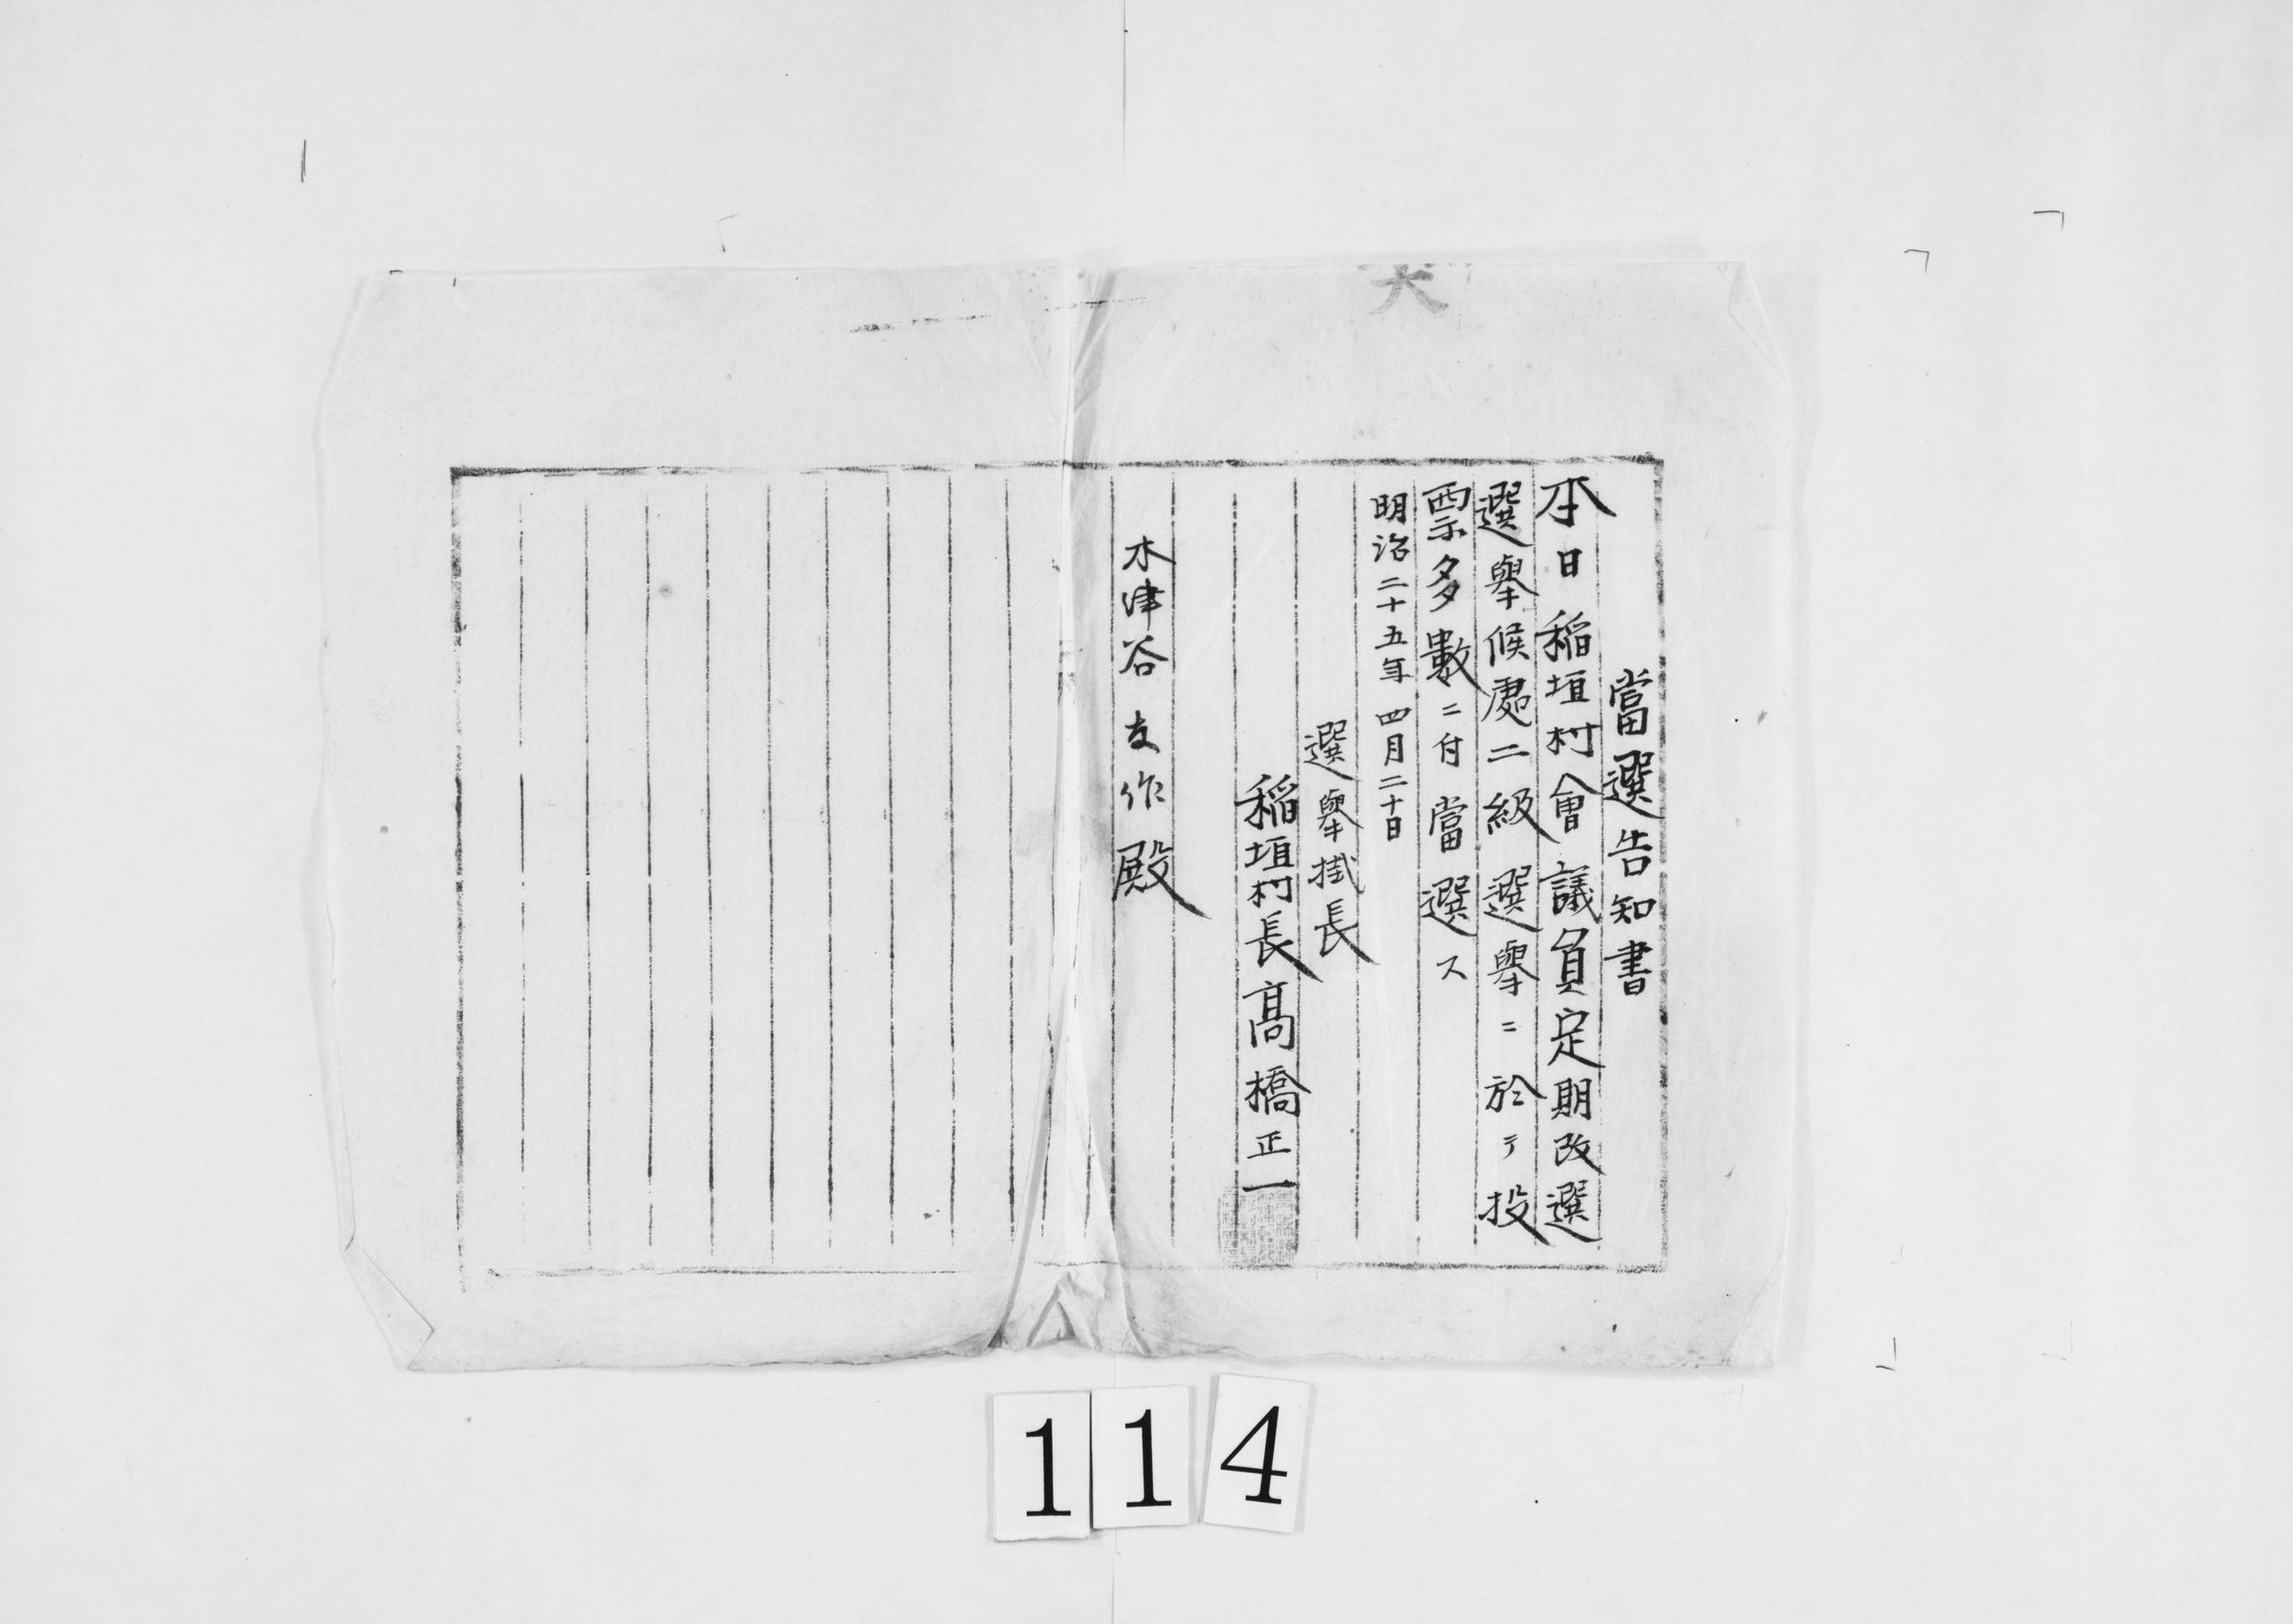 當選告知書
本日稲垣村會議員定期改選
選擧候處二級選擧ニ於テ投
票多數ニ付當選ス
明治二十五年四月二十日
選擧掛長
稲垣村長髙橋正一
木津谷友作殿
114